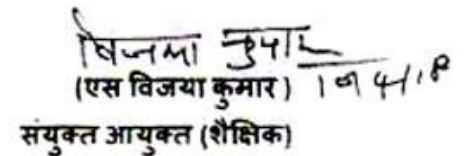 विजया कुमार
(एस विजया कुमार)
संयुक्त आयुक्त (शैक्षिक)